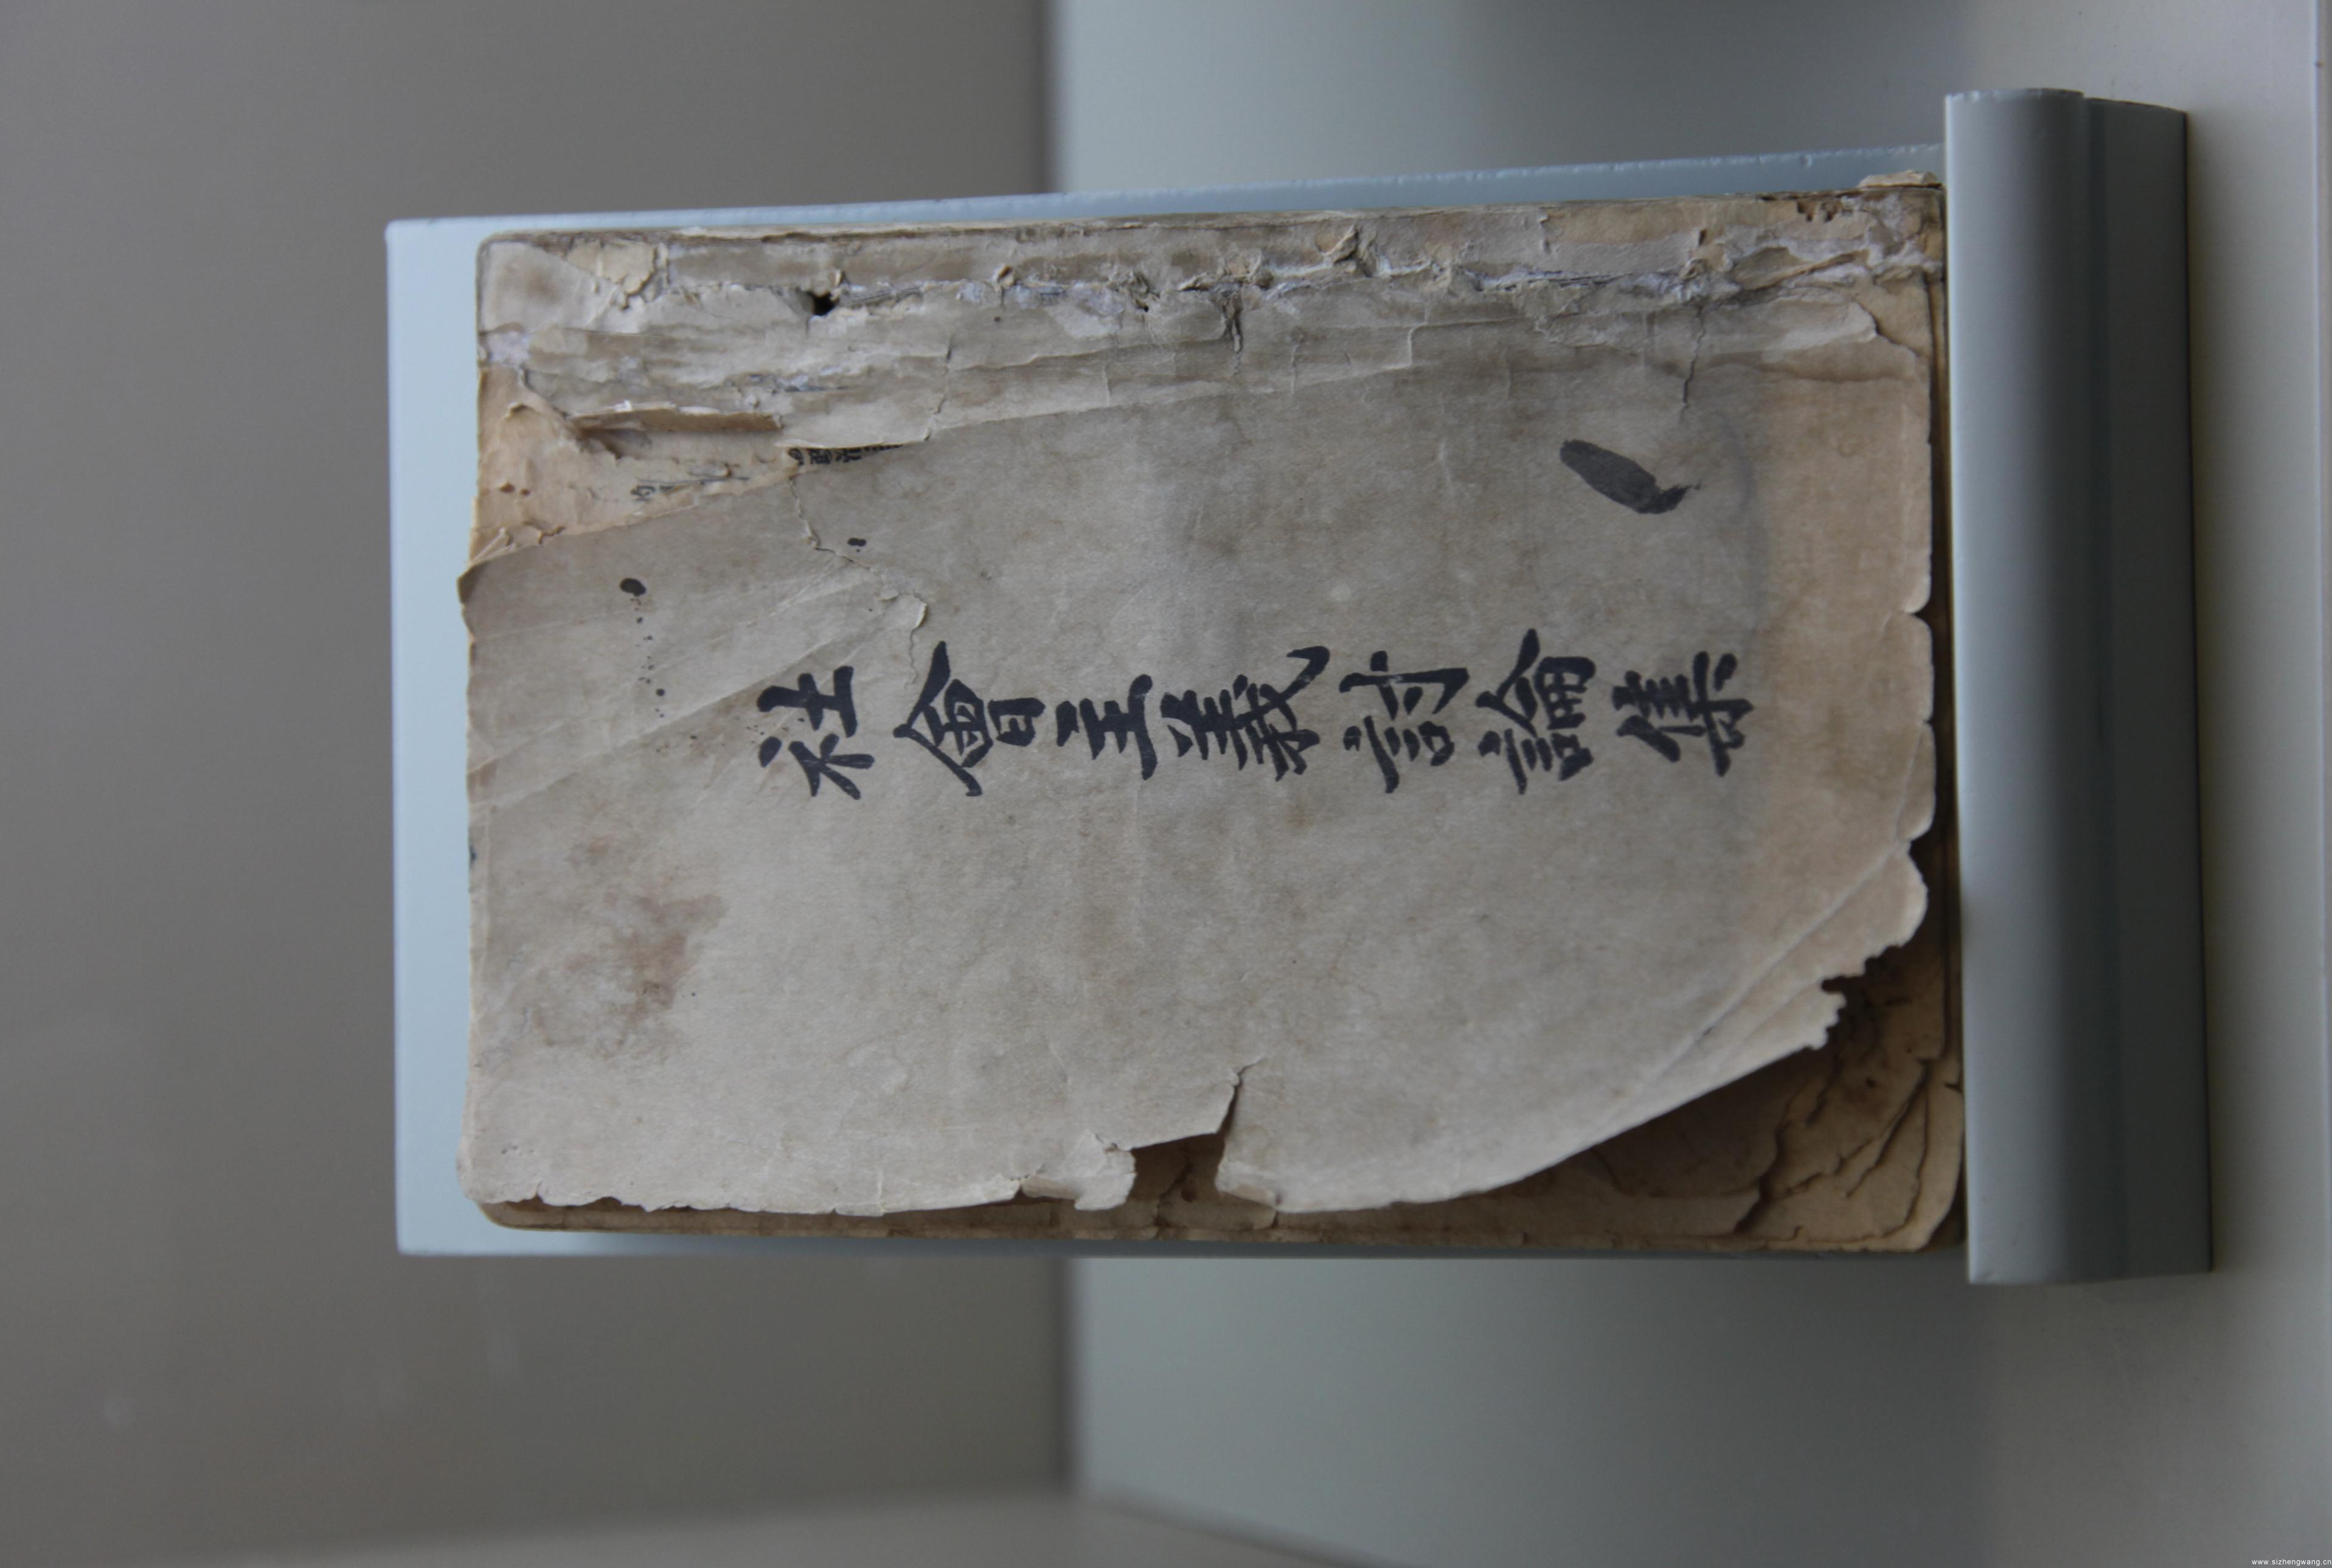 社會主義討論集
www.sizhengwang.cn